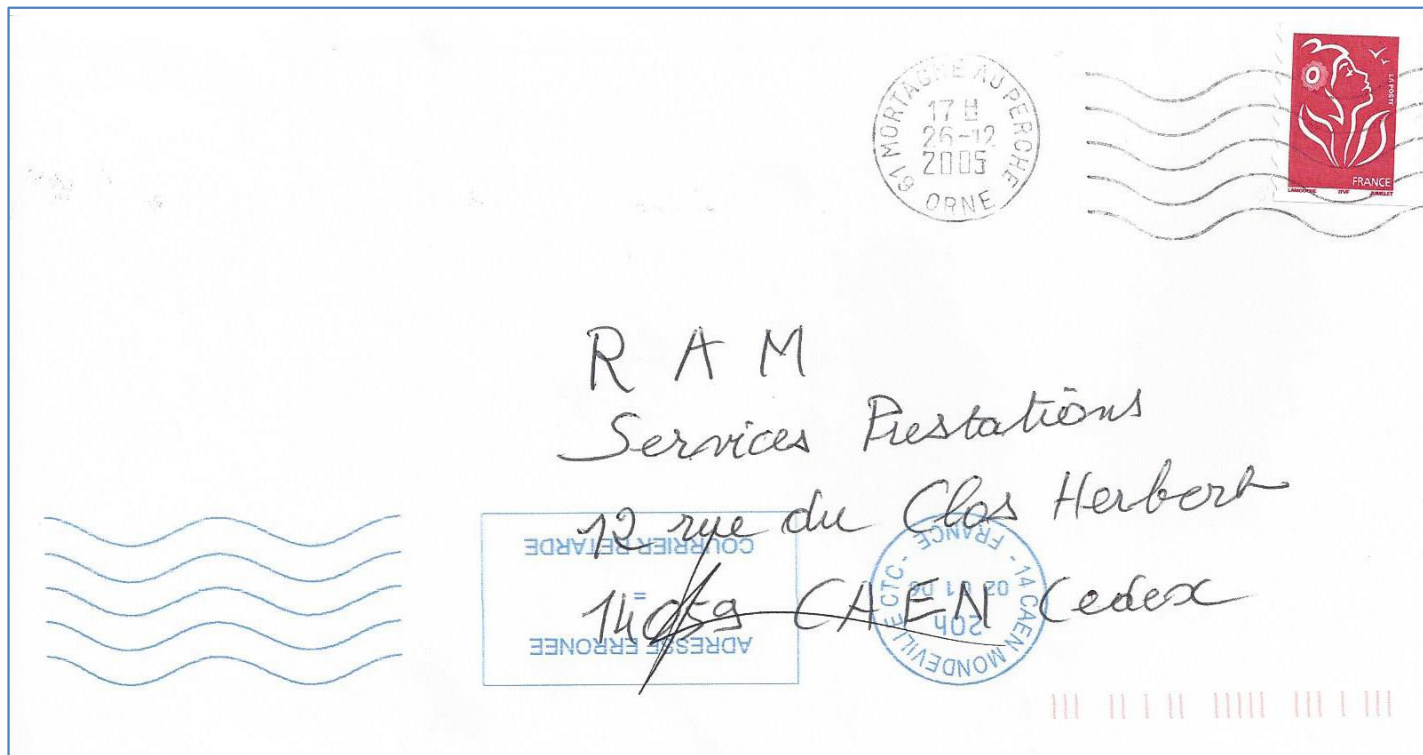 61 MORTAGNE AU PERCHE
17 H
26-12
2005
ORNE
LA POSTE
FRANCE
LAMOUCHE ITVF JUMELET
R A M
Services Prestations
12 rue du Clos Herbert
14059 CAEN Cedex
ADRESSE ERRONEE
=
COURRIER RETARDE
14 CAEN MONDEVILLE CTC - FRANCE -
20h
02 01 06